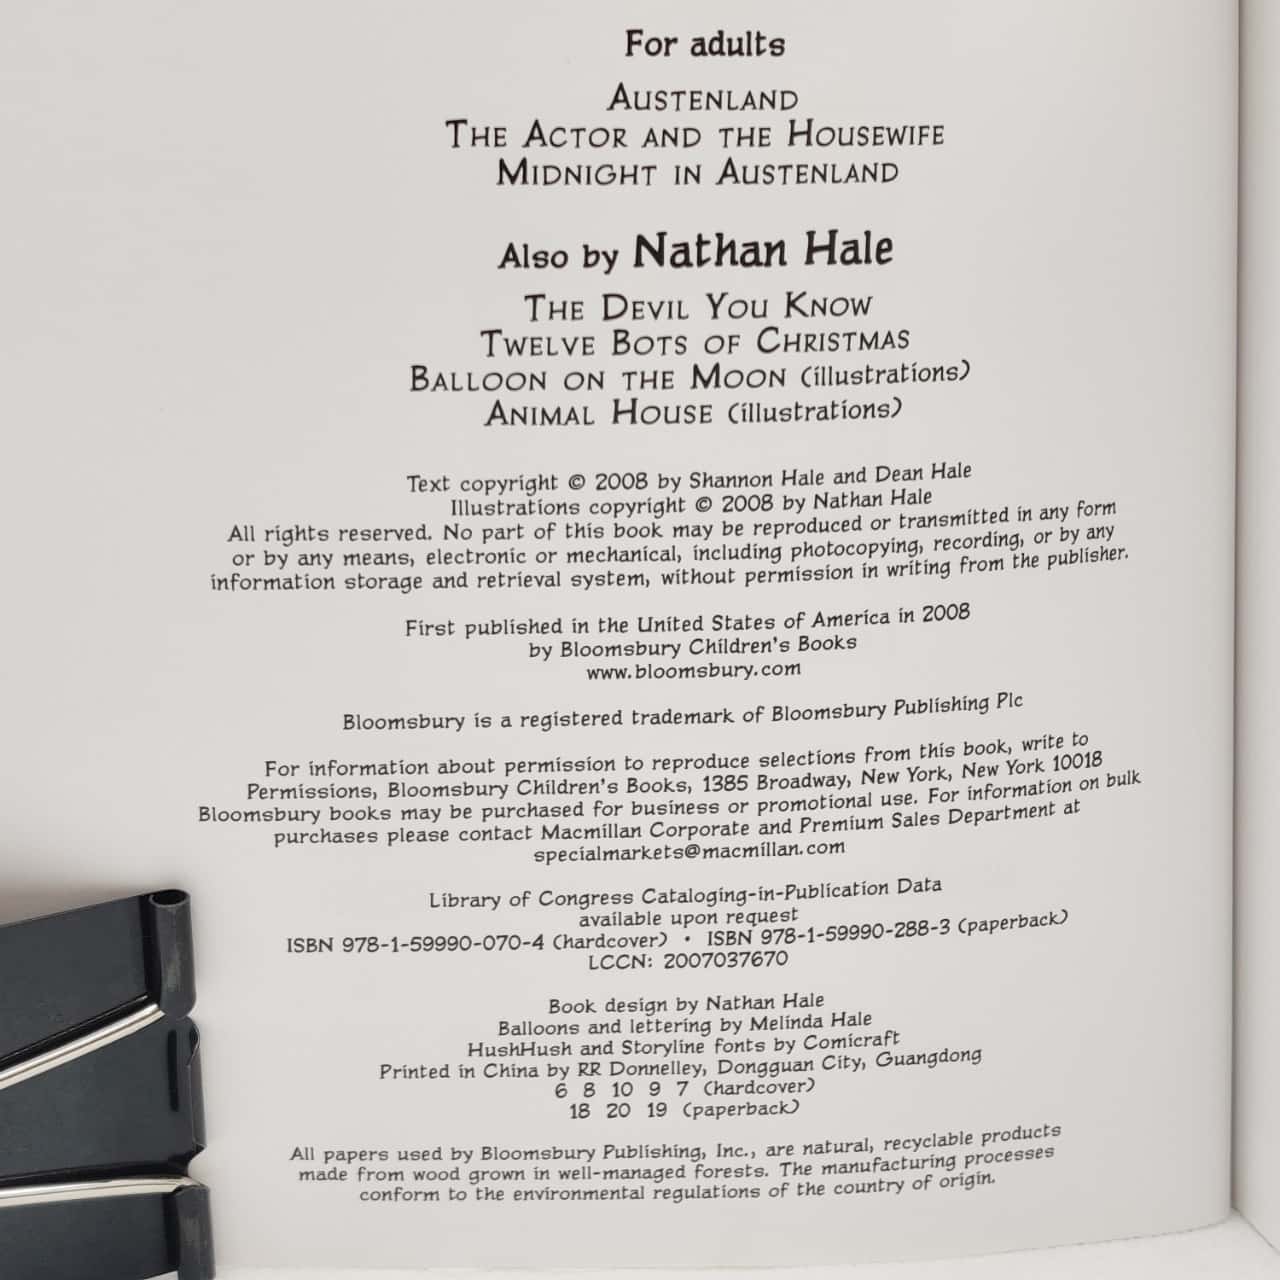 For adults
AUSTENLAND
THE ACTOR AND THE HOUSEWIFE
MIDNIGHT IN AUSTENLAND
Also by Nathan Hale
THE DEVIL YOU KNOW
TWELVE BOTS OF CHRISTMAS
BALLOON ON THE MOON (illustrations)
ANIMAL HOUSE (illustrations)
Text copyright © 2008 by Shannon Hale and Dean Hale
Illustrations copyright © 2008 by Nathan Hale
All rights reserved. No part of this book may be reproduced or transmitted in any form
or by any means, electronic or mechanical, including photocopying, recording, or by any
information storage and retrieval system, without permission in writing from the publisher.
First published in the United States of America in 2008
by Bloomsbury Children's Books
www.bloomsbury.com
Bloomsbury is a registered trademark of Bloomsbury Publishing Plc
For information about permission to reproduce selections from this book, write to
Permissions, Bloomsbury Children's Books, 1385 Broadway, New York, New York 10018
Bloomsbury books may be purchased for business or promotional use. For information on bulk
purchases please contact Macmillan Corporate and Premium Sales Department at
specialmarkets@macmillan.com
Library of Congress Cataloging-in-Publication Data
available upon request
ISBN 978-1-59990-070-4 (hardcover) • ISBN 978-1-59990-288-3 (paperback)
LCCN: 2007037670
Book design by Nathan Hale
Balloons and lettering by Melinda Hale
HushHush and Storyline fonts by Comicraft
Printed in China by RR Donnelley, Dongguan City, Guangdong
6 8 10 9 7 (hardcover)
18 20 19 (paperback)
All papers used by Bloomsbury Publishing, Inc., are natural, recyclable products
made from wood grown in well-managed forests. The manufacturing processes
conform to the environmental regulations of the country of origin.